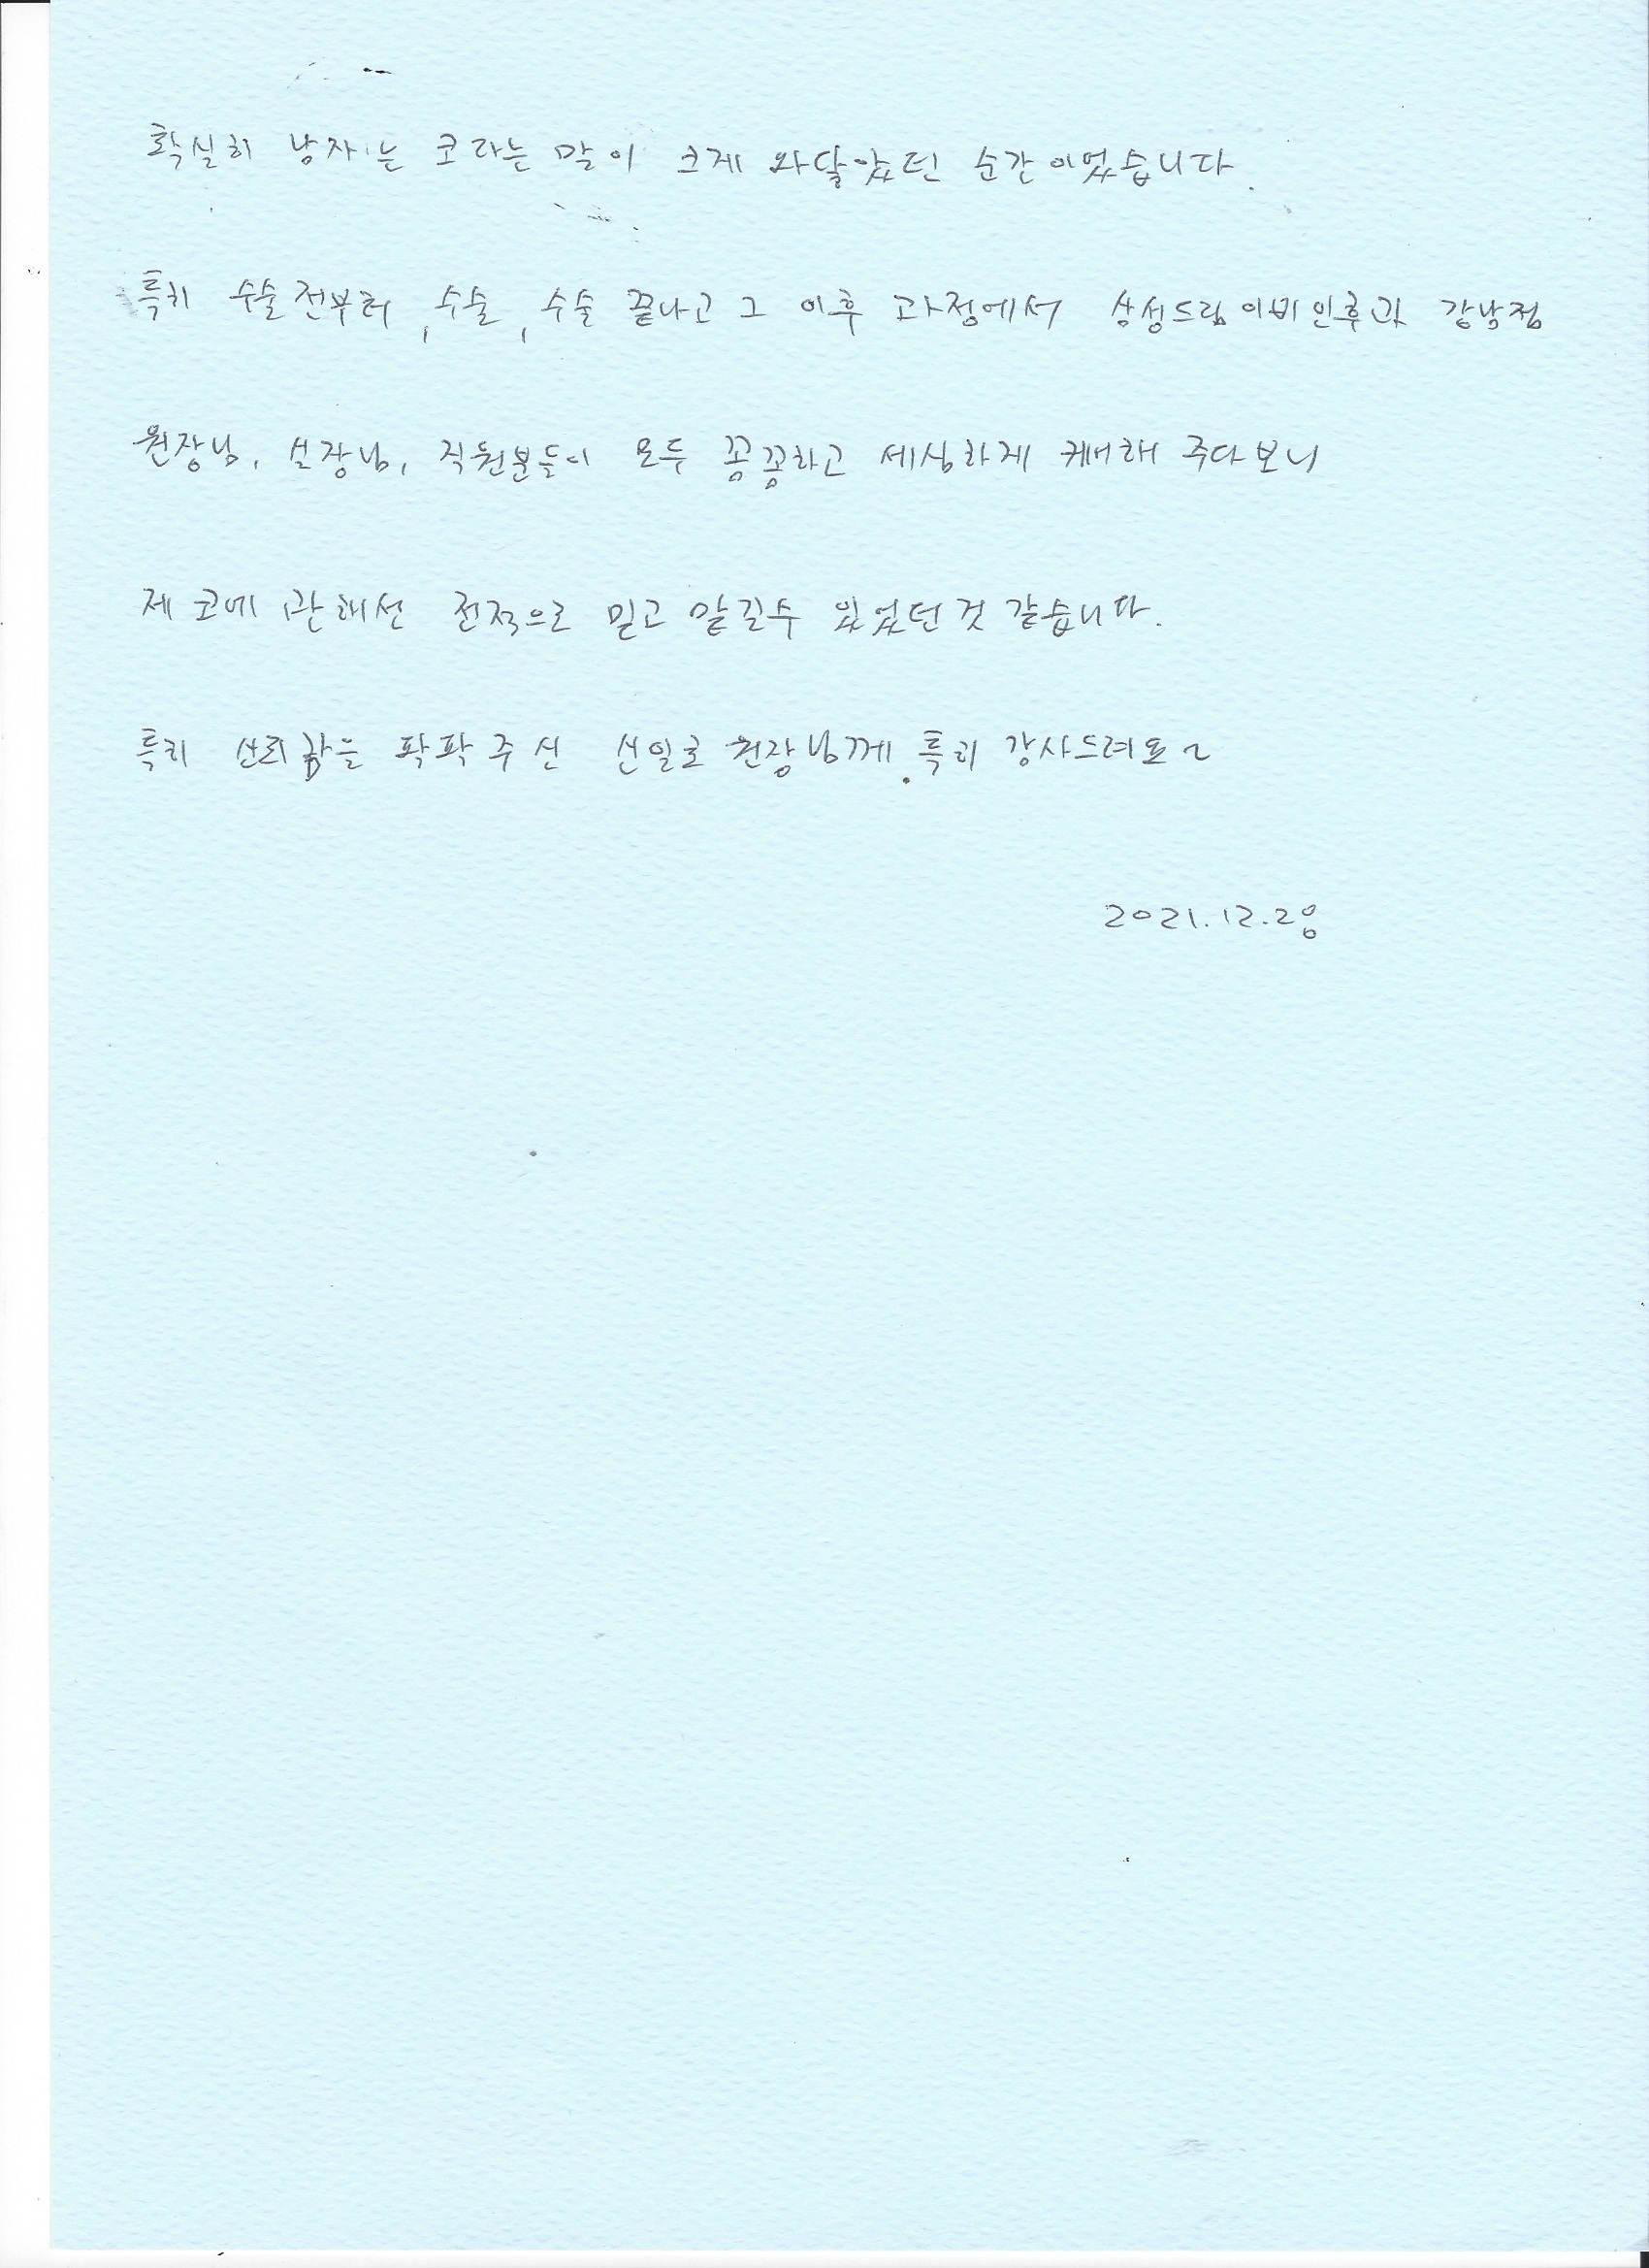 확실히 남자는 코라는 말이 크게 와닿았던 순간이었습니다.
특히 수술전부터, 수술, 수술 끝나고 그 이후 과정에서 삼성드림이비인후과 강남점
원장님, 실장님, 직원분들이 모두 꼼꼼하고 세심하게 케어해 주다보니
제 코에 관해선 전적으로 믿고 맡길수 있었던것 같습니다.
특히 신뢰감을 팍팍 주신 신일호 원장님께 특히 감사드려요~
2021.12.28